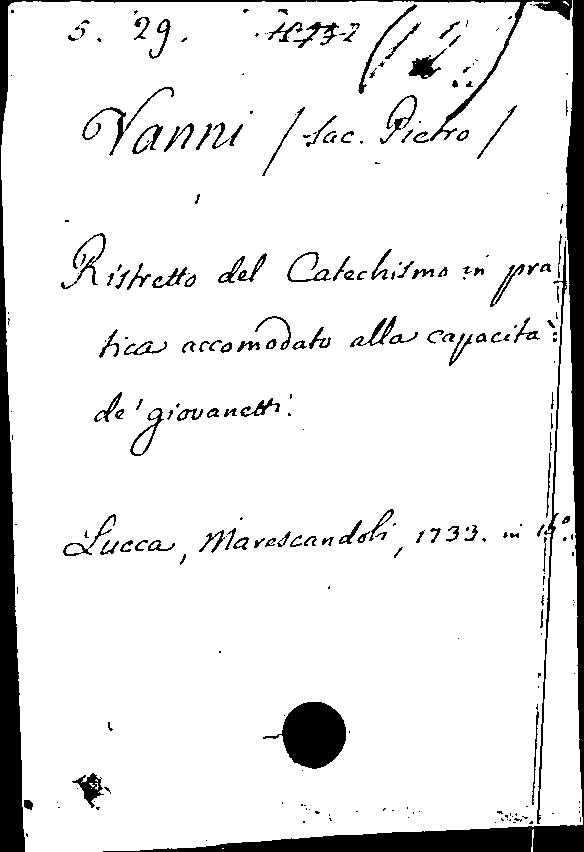 5. 29.
Vanni / sac. Pietro /
Ristretto del Catechismo in pra
tica accomodato alla capacità
de' giovanetti.
Lucca, Marescandoli, 1733. in